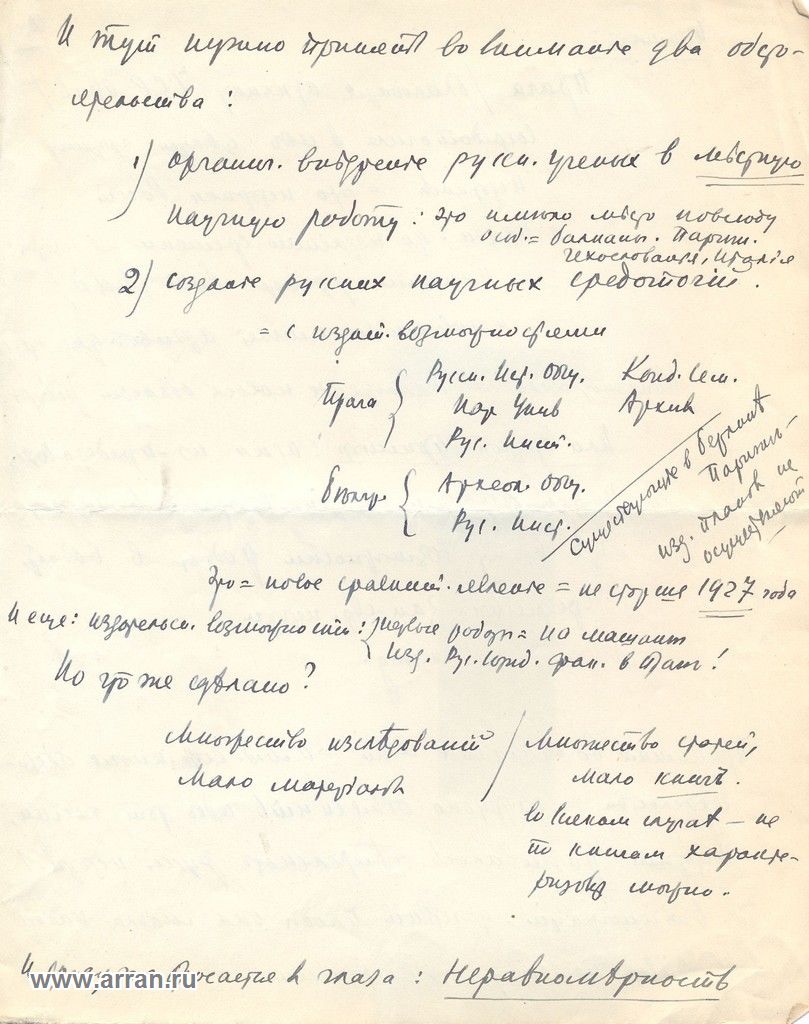 И тут нужно принять во внимание два обсто-
ятельства:
1) организ. внѣдрение русск. ученых в мѣстную
научную работу: это имѣло мѣсто повсюду
особ.= Балканы. Париж.
Чехословакия, Италия
2) создание русских научных средоточий.
= с издат. возможностями
Прага { Русск. Ист. Общ. Конд. Сем.
Нар Унив Архив
Рус. Инст.
Бѣлгр. { Археол. Общ.
Рус. Инст.
Существующие в Берлинѣ
Париж-
изд. планов не
осуществляют
Это = новое сравнит. явление = не старше 1927 года
И еще: издательск. возможности: { первые работы = на машинк
Изд. Рус. Юрид. фак. в Праг!
Но что же сдѣлано?
Множество изслѣдований / Множество статей,
Мало матерiалов мало книгъ.
во всяком случаѣ – не
по книгам характе-
ризовать можно.
И бросается в глаза: Неравномѣрность
www.arran.ru